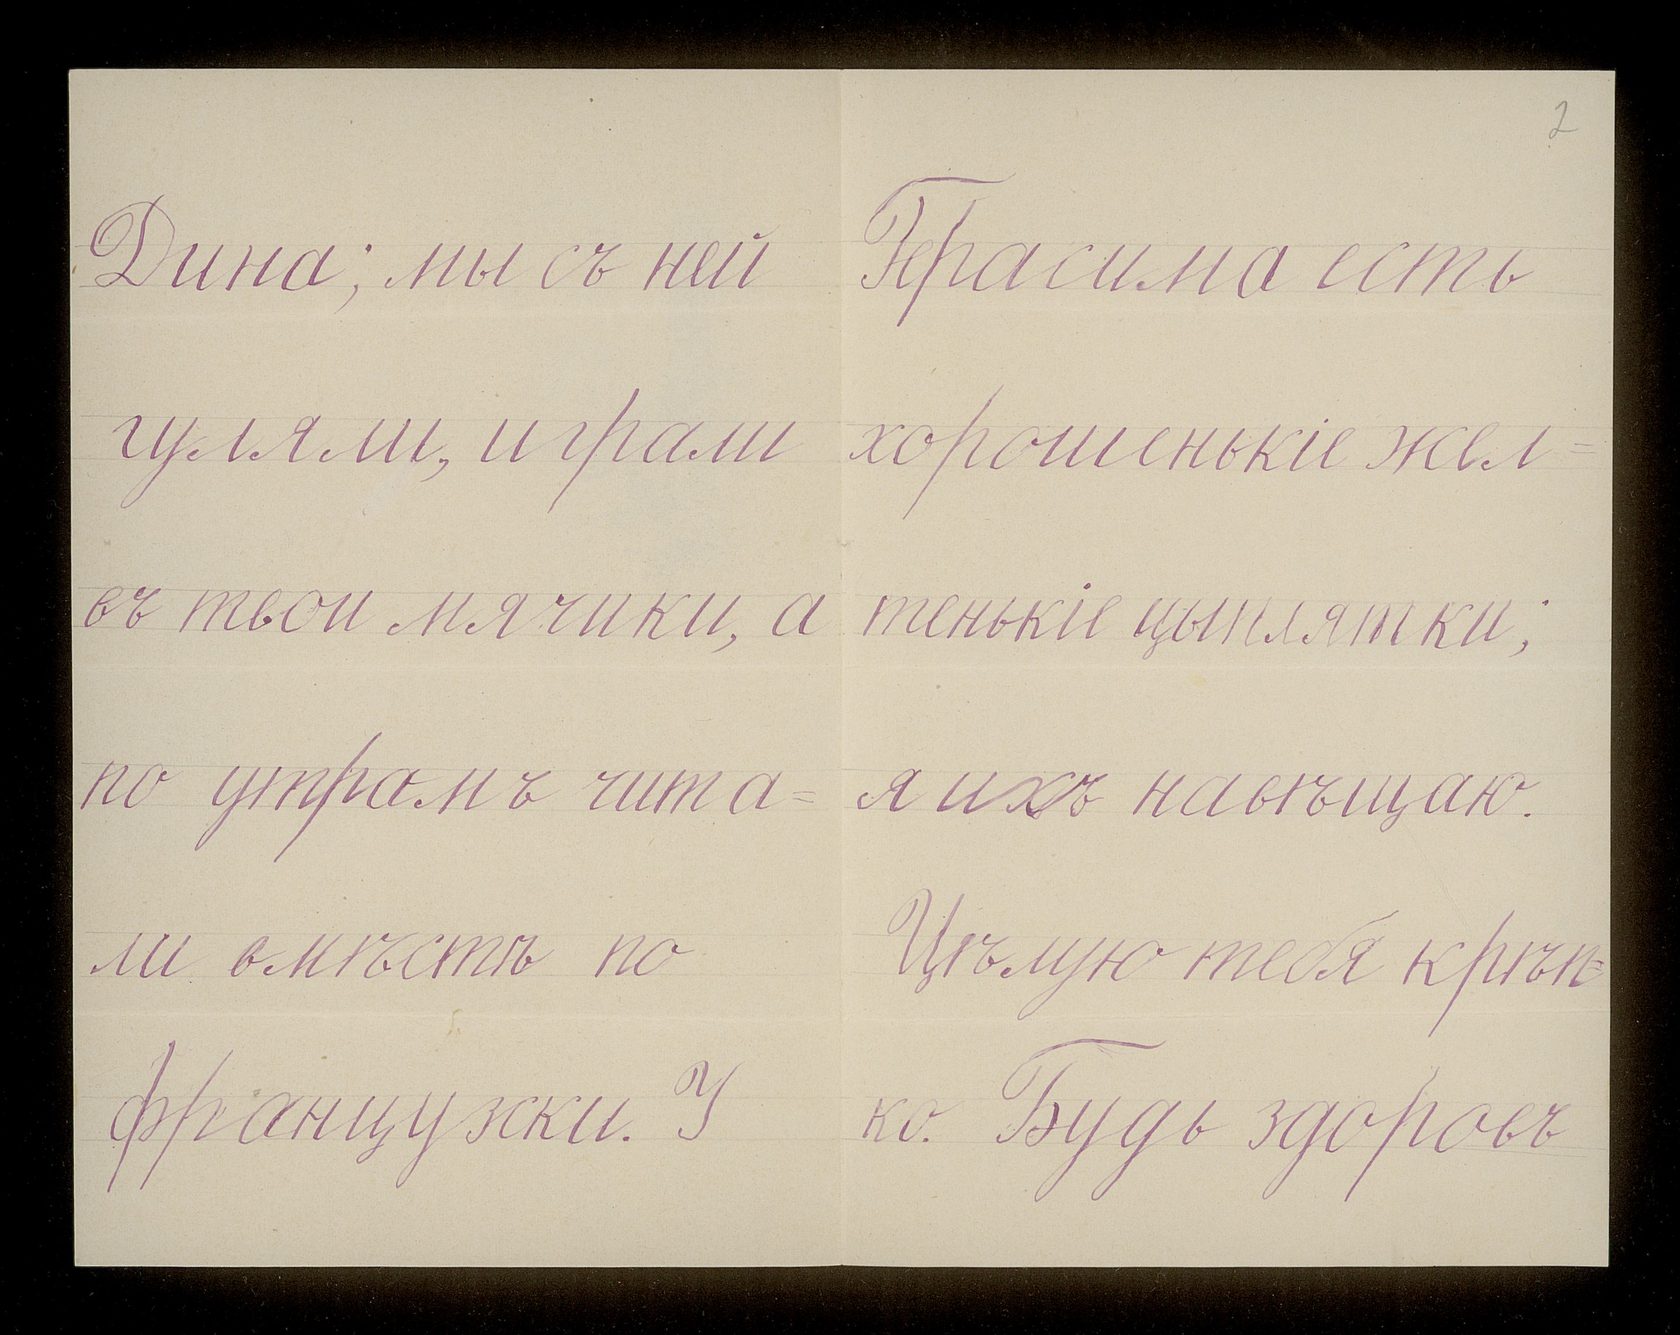 Дина; мы съ ней
гуляли, играли
въ твои мячики, а
по утрамъ чита=
ли вмѣстѣ по
французски. У
2
Герасима есть
хорошенькіе жел=
тенькіе цыплятки;
я ихъ навѣщаю.
Цѣлую тебя крѣп=
ко. Будь здоровъ